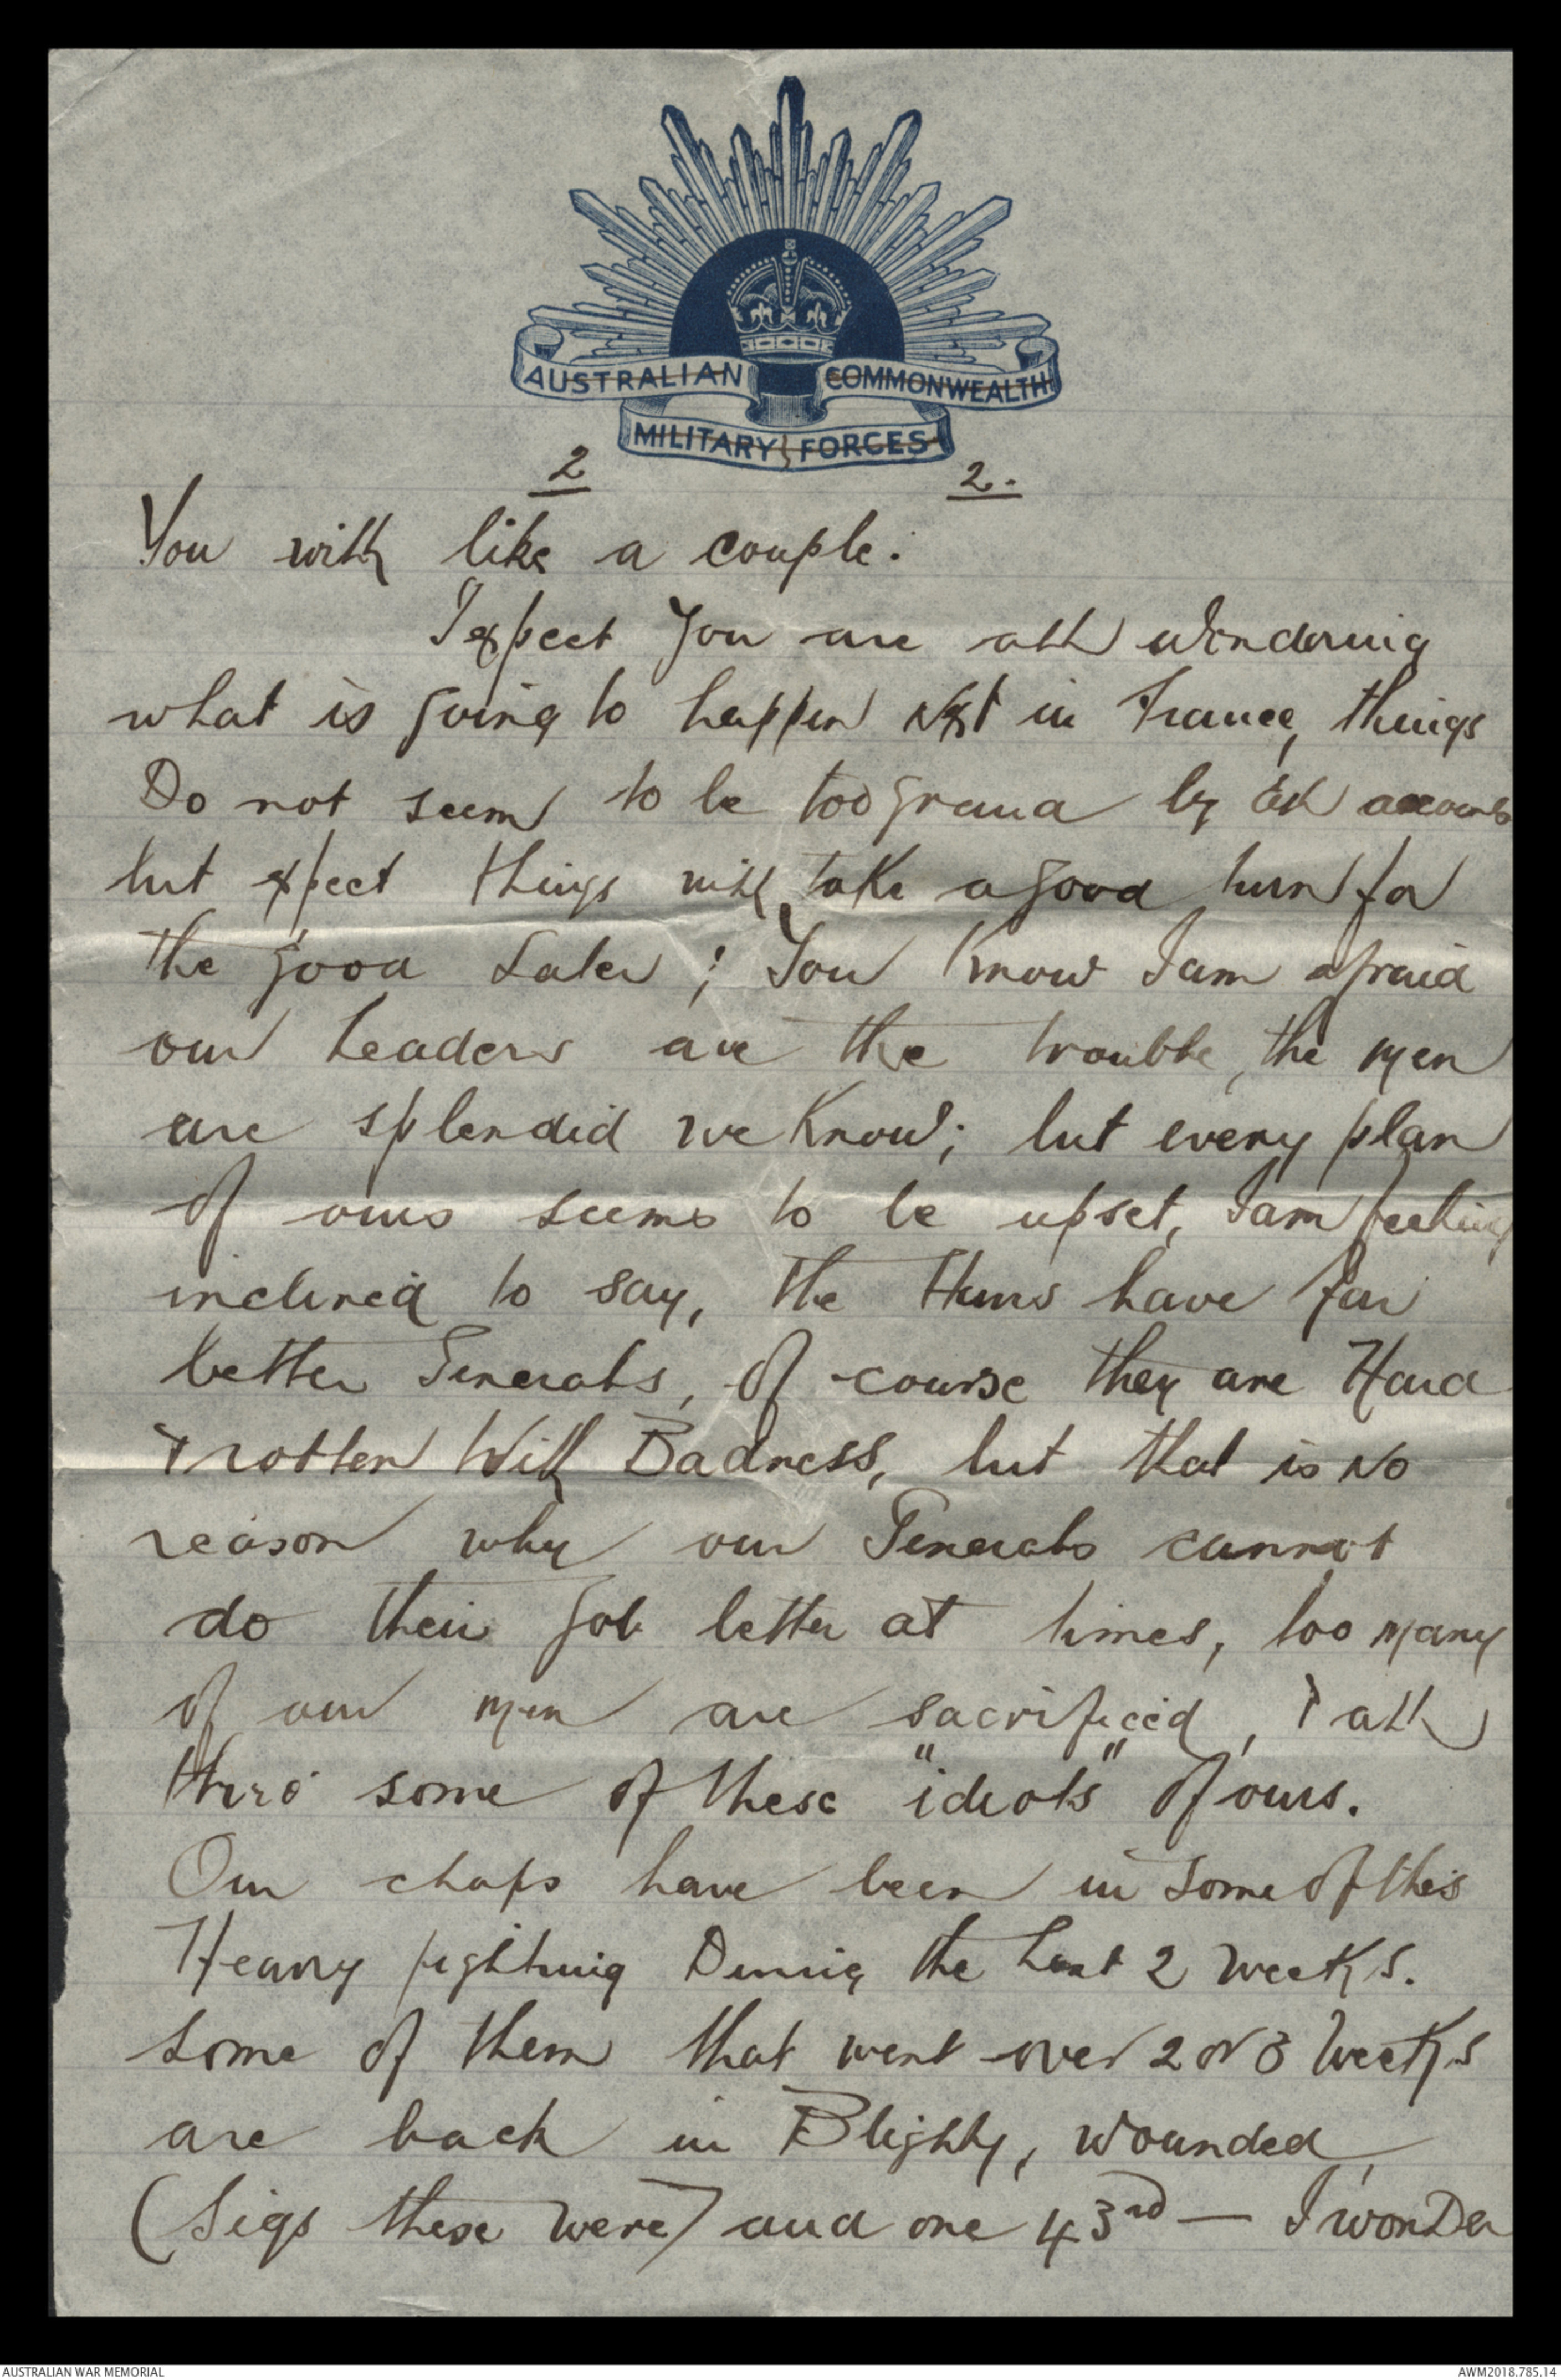 AUSTRALIAN COMMONWEALTH
MILITARY FORCES
2 2.
You will like a couple.
I expect you are all wondering
what is going to happen next in France, things
Do not seem to be too grand by all accounts
but expect things will take a good turn for
the good Later; You Know I am afraid
our Leaders are the trouble, the men
are splendid we Know; but every plan
of ours seems to be upset, I am feeling
inclined to say, the Huns have far
better Generals, of course they are Hard
& rotten With Badness, but that is No
reason why our Generals cannot
do their job better at times, too many
of our men are sacrificed, & all
thro' some of these "idiots" of ours.
Our chaps have been in some of this
Heavy fighting During the Last 2 weeks.
Some of them that went over 2 or 3 Weeks
are back in Blighty, wounded,
(Sigs these were) and one 43rd — I wonder
AUSTRALIAN WAR MEMORIAL
AWM2018.785.14